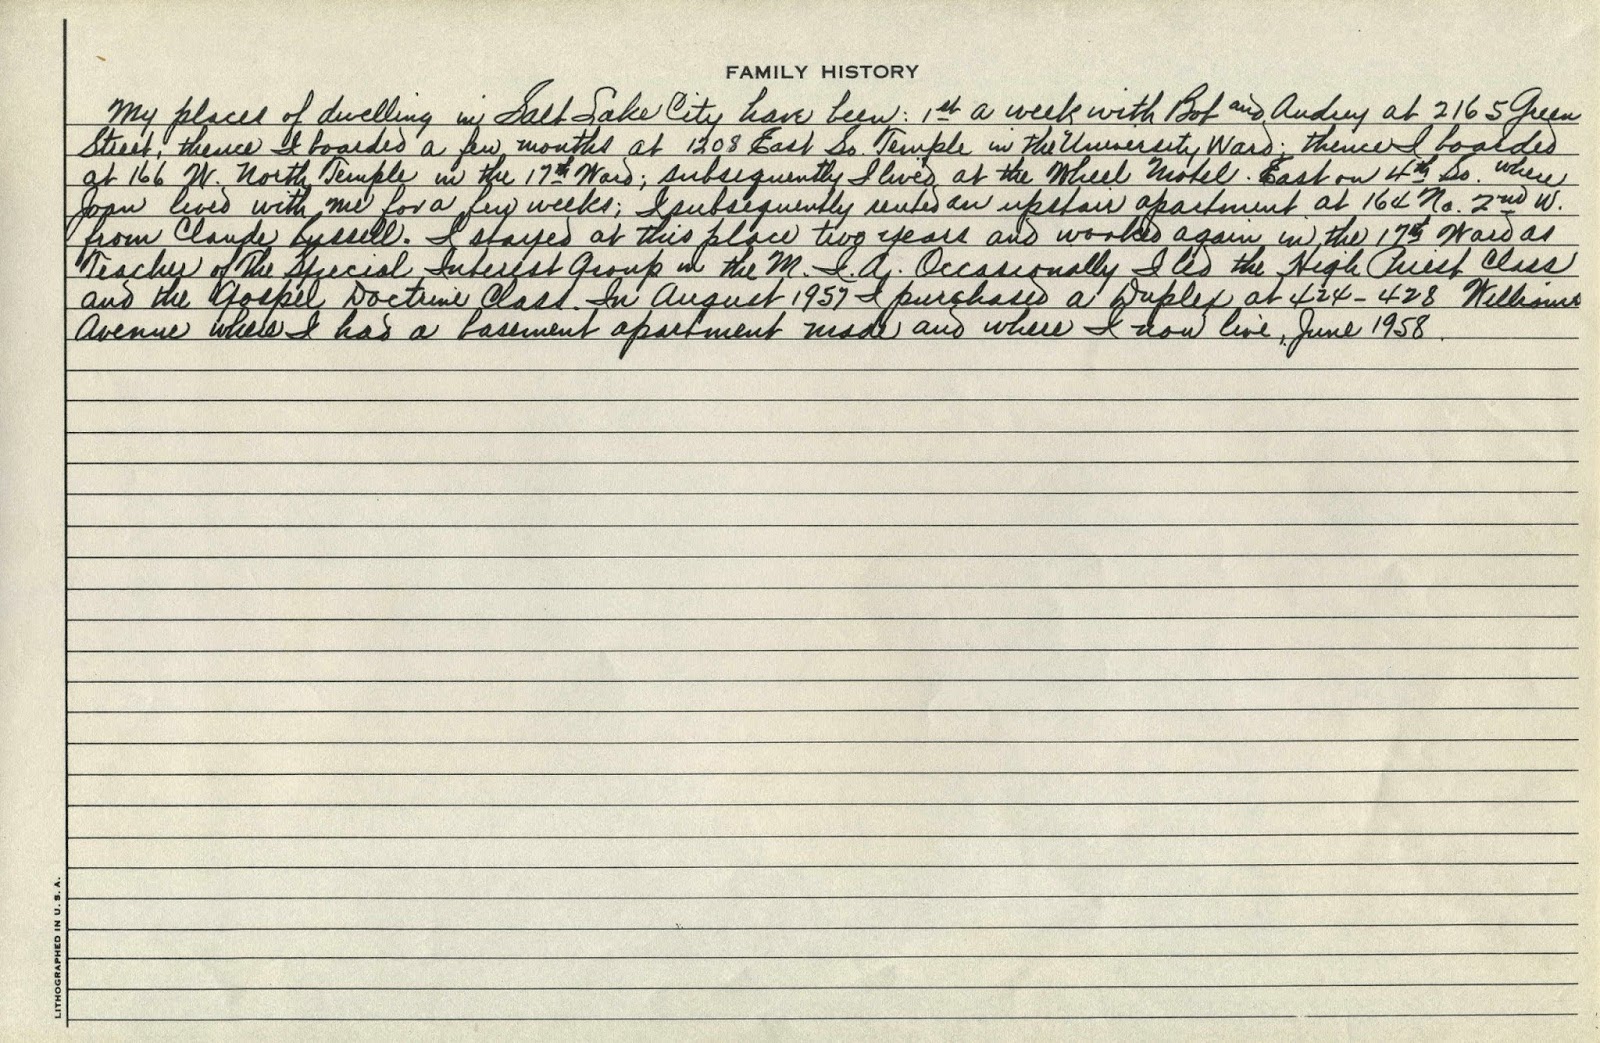 FAMILY HISTORY
My places of dwelling in Salt Lake City have been: 1st a week with Bob and Audrey at 2165 Green
Street; thence I boarded a few months at 1208 East So. Temple in the University Ward; thence I boarded
at 166 W. North Temple in the 17th Ward; subsequently I lived at the Wheel Motel. East on 4th So. where
Joan lived with me for a few weeks; I subsequently rented an upstair apartment at 164 No. 2nd W.
from Claude . I stayed at this place two years and worked again in the 17th Ward as
Teacher of The Special Interest Group in the M. I. A. Occasionally I led the High Priest Class
and the Gospel Doctrine Class. In August 1957 I purchased a Duplex at 424-428 Williams
Avenue where I had a basement apartment made and where I now live, June 1958.
LITHOGRAPHED IN U. S. A.